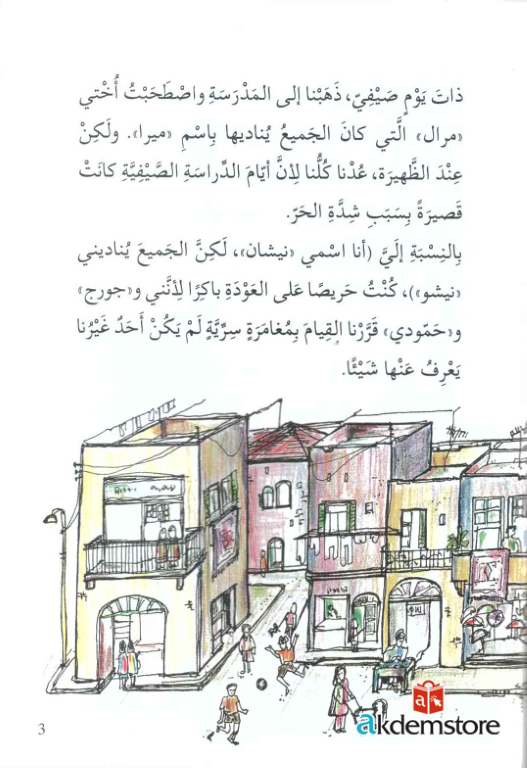 ذاتَ يَوْمٍ صَيْفِيّ، ذَهَبْنا إلى المَدْرَسَةِ واصْطَحَبْتُ أُخْتي
«مرال» الَّتي كانَ الجَميعُ يُناديها بِاسْمِ «ميرا». ولَكِنْ
عِنْدَ الظَّهيرَة، عُدْنا كُلُّنا لِأنَّ أيّامَ الدِّراسَةِ الصَّيْفِيَّةِ كانَتْ
قَصيرَةً بِسَبَبِ شِدَّةِ الحَرّ.
بِالنِسْبَةِ إلَيَّ (أنا اسْمي «نيشان»، لَكِنَّ الجَميعَ يُناديني
«نيشو»)، كُنْتُ حَريصًا عَلى العَوْدَةِ باكِرًا لِأنَّني و«جورج»
و«حَمّودي» قَرَّرْنا القِيامَ بِمُغامَرَةٍ سِرِّيَّةٍ لَمْ يَكُنْ أَحَدٌ غَيْرُنا
يَعْرِفُ عَنْها شَيْئًا.
akdemstore
3